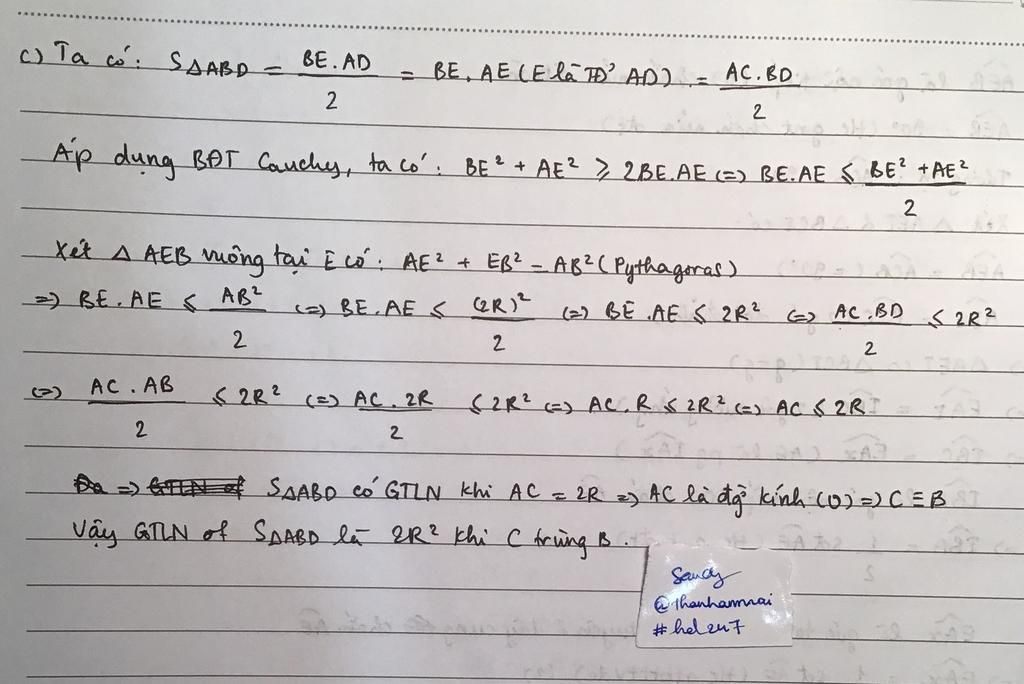 c) Ta có: SΔABD = BE.AD/2 = BE.AE (E là TĐ' AD) = AC.BD/2
Áp dụng BĐT Cauchy, ta có: BE² + AE² ≥ 2BE.AE (=) BE.AE ≤ BE² + AE²/2
Xét Δ AEB vuông tại E có: AE² + EB² = AB² (Pythagoras)
=) BE.AE ≤ AB²/2 (=) BE.AE ≤ (2R)²/2 (=) BE.AE ≤ 2R² (=) AC.BD/2 ≤ 2R²
(=) AC.AB/2 ≤ 2R² (=) AC.2R/2 ≤ 2R² (=) AC.R ≤ 2R² (=) AC ≤ 2R
=) SΔABD có GTLN khi AC = 2R =) AC là đg̀ kính (O) =) C ≡ B
Vậy GTLN of SΔABD là 2R² khi C trùng B.
Sandy
@thanhamnai
#hel247